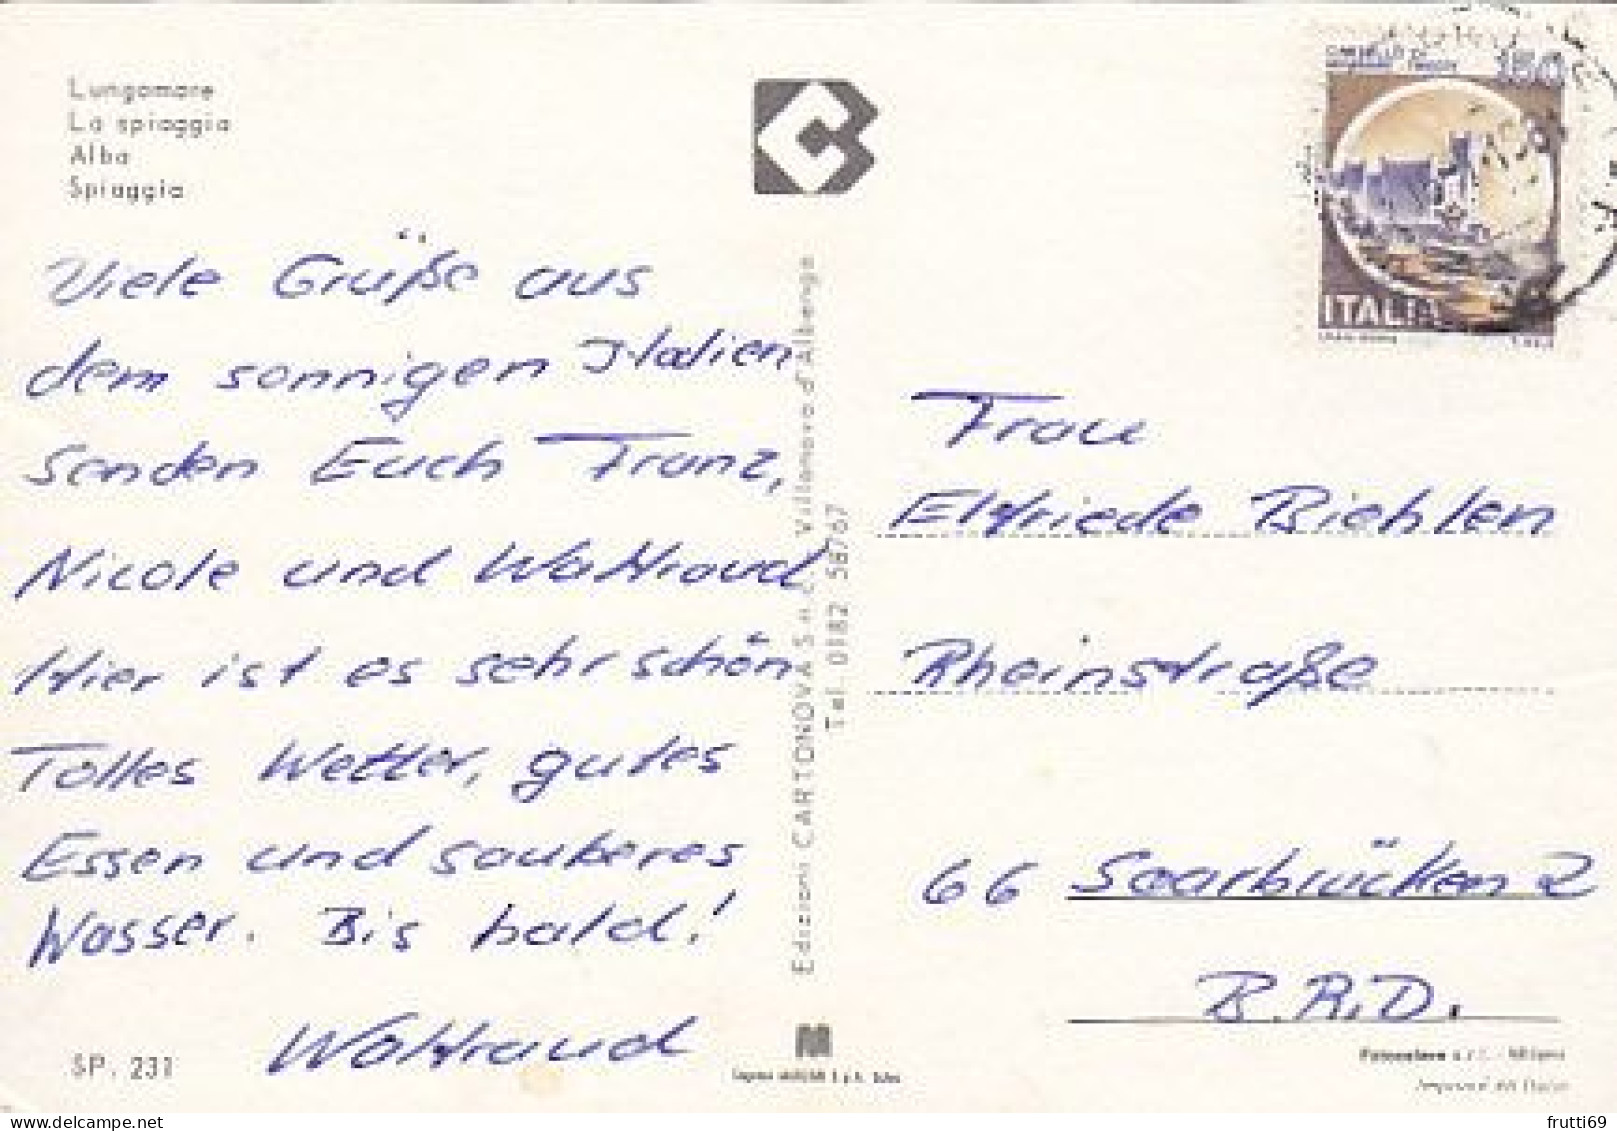 Lungomare
La spiaggia
Alba
Spiaggia
Viele Grüße aus
dem sonnigen Italien
senden Euch Franz,
Nicole und Waltraud
Hier ist es sehr schön
Tolles Wetter, gutes
Essen und sauberes
Wasser. Bis bald!
Waltraud
SP. 231
Edizioni CARTONOVA S.n.c. Villanova d'Albenga
Tel. 0182 58767
150
ITALIA
Frau
Elfriede Biehlen
Rheinstraße
66 Saarbrücken 2
B.R.D.
Fotocelere s.r.l. - Milano
frutti69